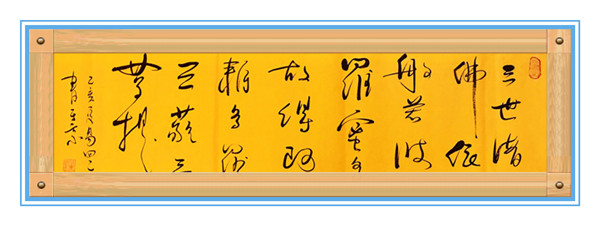 三世諸
佛依
般若波
羅蜜多
故得阿
耨多羅
三藐三
菩提